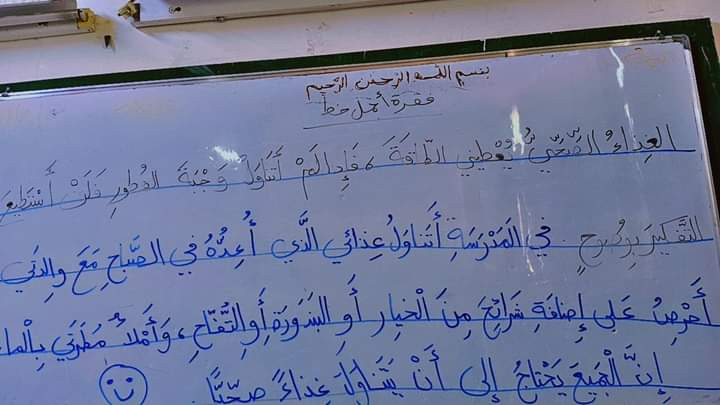 بسم الله الرحمن الرحيم
فقرة أجمل خط
الغِذاءُ الصِّحِّيُّ يُعْطِيني الطّاقَةَ، فَإِذا لَمْ أَتَناوَلْ وَجْبَةَ الفُطورِ فَلَنْ أَسْتَطيعَ
التَّفْكيرَ بِوُضوحٍ. في المَدْرَسَةِ أَتَناوَلُ غِذائي الَّذي أُعِدُّهُ في الصَّباحِ مَعَ والِدَتي
أَحْرِصُ عَلى إِضافَةِ شَرائِحَ مِنَ الْخِيارِ أَوِ البَنَدورَةِ أَوِ التُّفّاحِ، وَأَمْلَأُ مَطَرَتي بِالْماءِ
إِنَّ الْجَميعَ يَحْتاجُ إِلى أَنْ يَتَناوَلَ غِذاءً صِحِّيًّا.